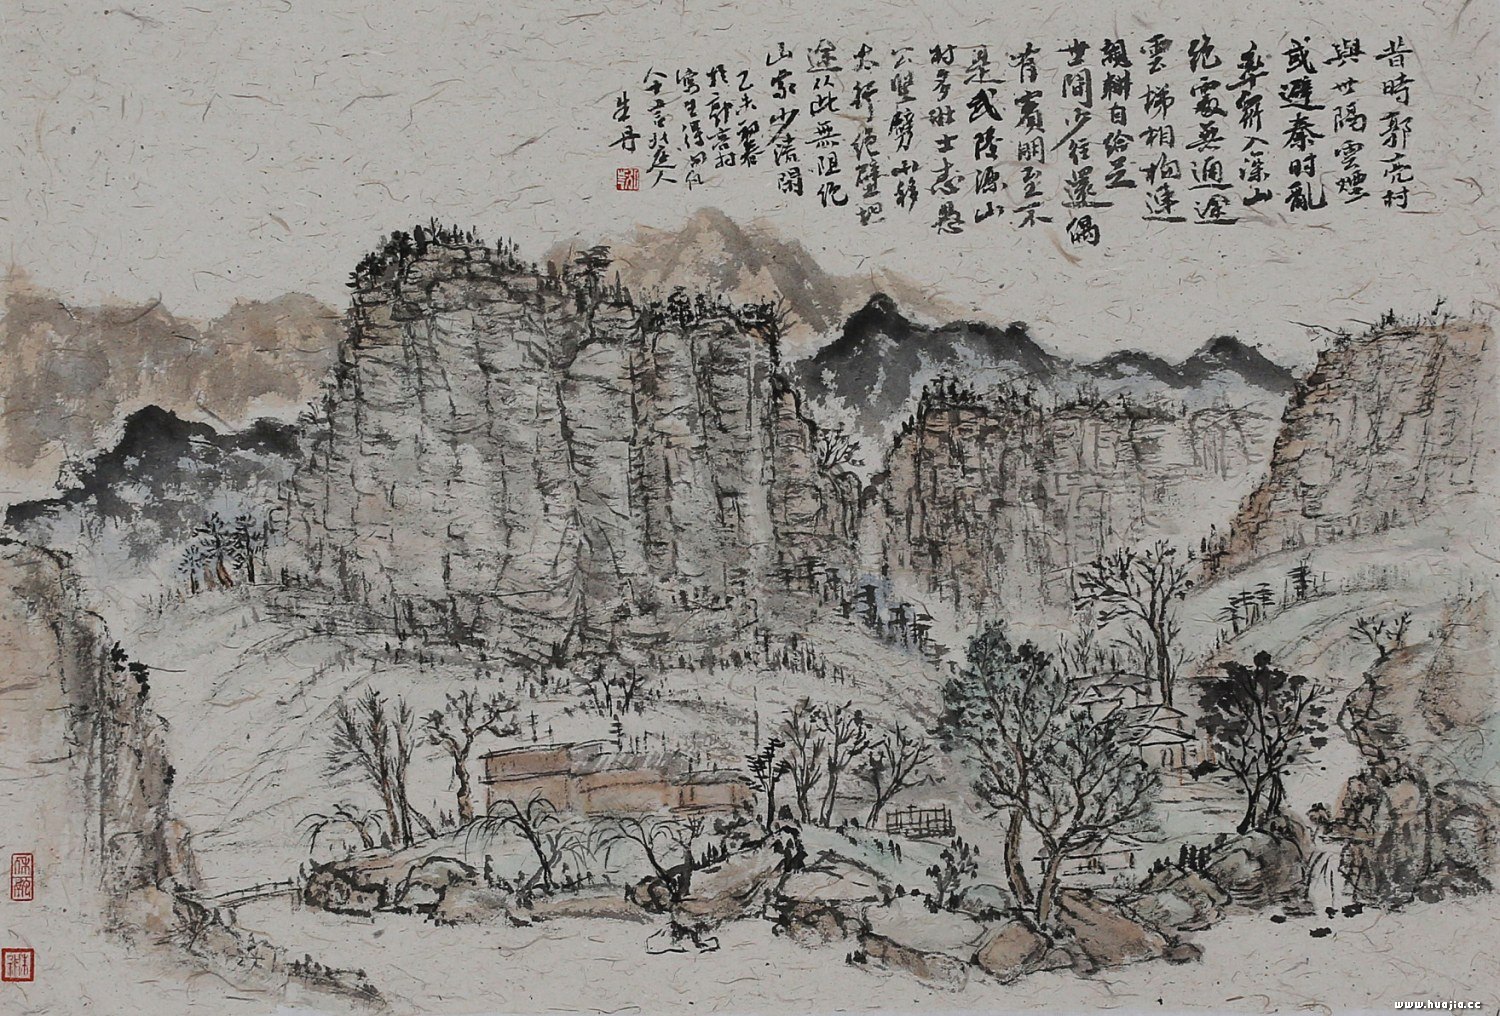 昔時郭亮村
與世隔雲煙
或避秦時亂
入深山
絕處無通途
雲梯相連
親耕自給足
世間少往還偶
有賓朋至不
是武陵源山
村多壯士志愚
公移
太行絕壁坦
途從此無阻絕
山家少清閑
乙未春
於郭亮村
寫生得句
人
www.huajia.cc